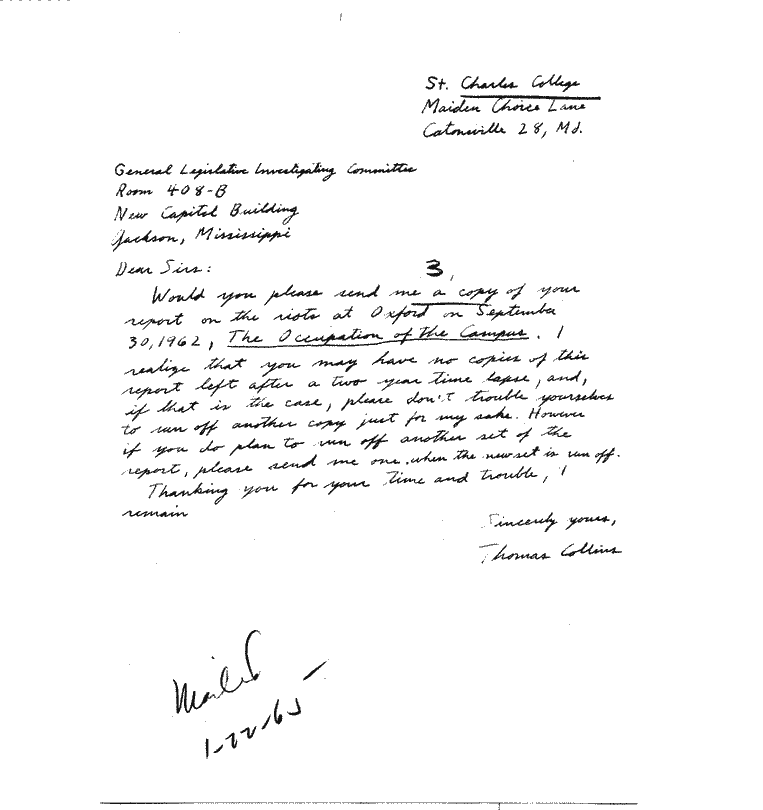 St. Charles College
Maiden Choice Lane
Catonsville 28, Md.
General Legislative Investigating Committee
Room 408-B
New Capitol Building
Jackson, Mississippi
Dear Sirs:
3
Would you please send me a copy of your
report on the riots at Oxford on September
30, 1962, The Occupation of the Campus. I
realize that you may have no copies of this
report left after a two year time lapse, and,
if that is the case, please don't trouble yourselves
to run off another copy just for my sake. However
if you do plan to run off another set of the
report, please send me one when the new set is run off.
Thanking you for your time and trouble, I
remain
Sincerely yours,
Thomas Collins
Mailed
1-22-65